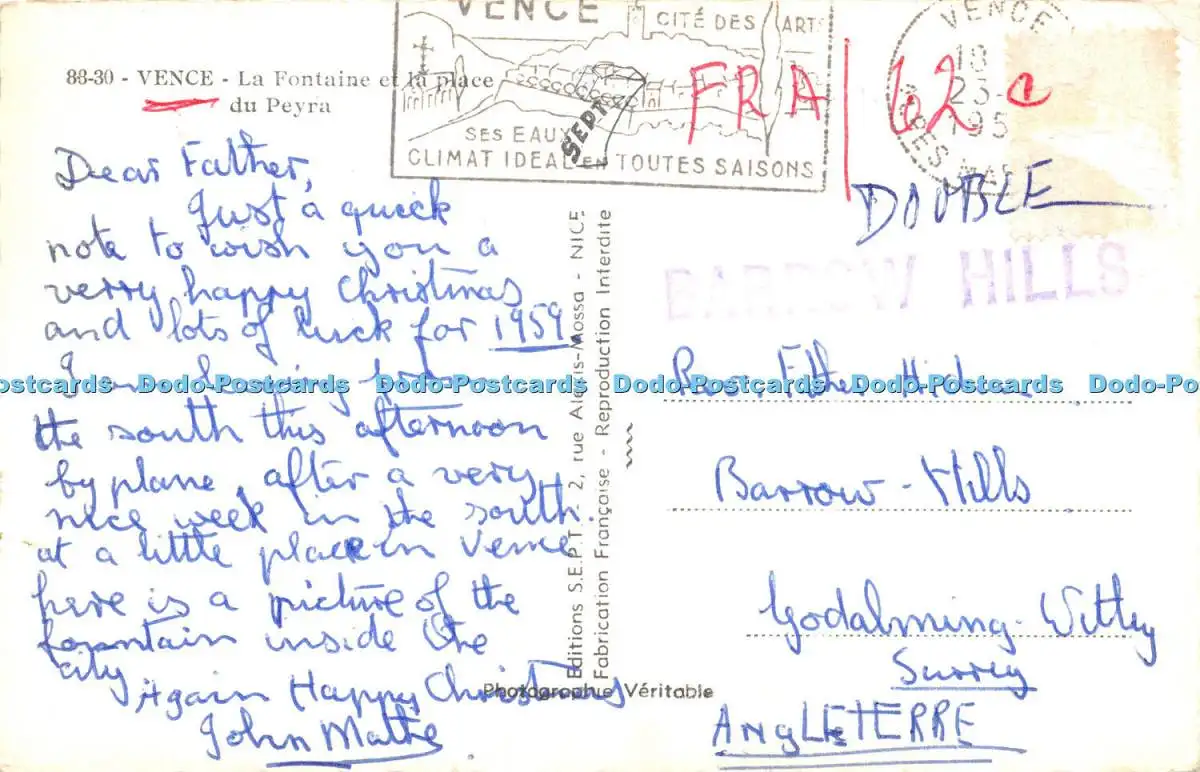 VENCE
CITÉ DES ARTS
SES EAUX
CLIMAT IDEAL EN TOUTES SAISONS
SEPT
VENCE
18
23-
195
88-30 - VENCE - La Fontaine et la place
du Peyra
FRA 62 c
DOUBLE
BARROW HILLS
Dear Father,
Just a quick
note to wish you a
verry happy Christmas
and lots of luck for 1959.
the south this afternoon
by plane, after a very
nice week in the south.
at a little place in Vence
here is a picture of the
fountain inside the
city
Again Happy Christmas
John
Editions S.E.P.T. - 2, rue Alexis-Mossa - NICE.
Fabrication Française - Reproduction Interdite
Photographie Véritable
Rev. Father
Barrow-Hills
Godalming-Witley
Surrey
ANGLETERRE
Dodo-Postcards Dodo-Postcards Dodo-Postcards Dodo-Postcards